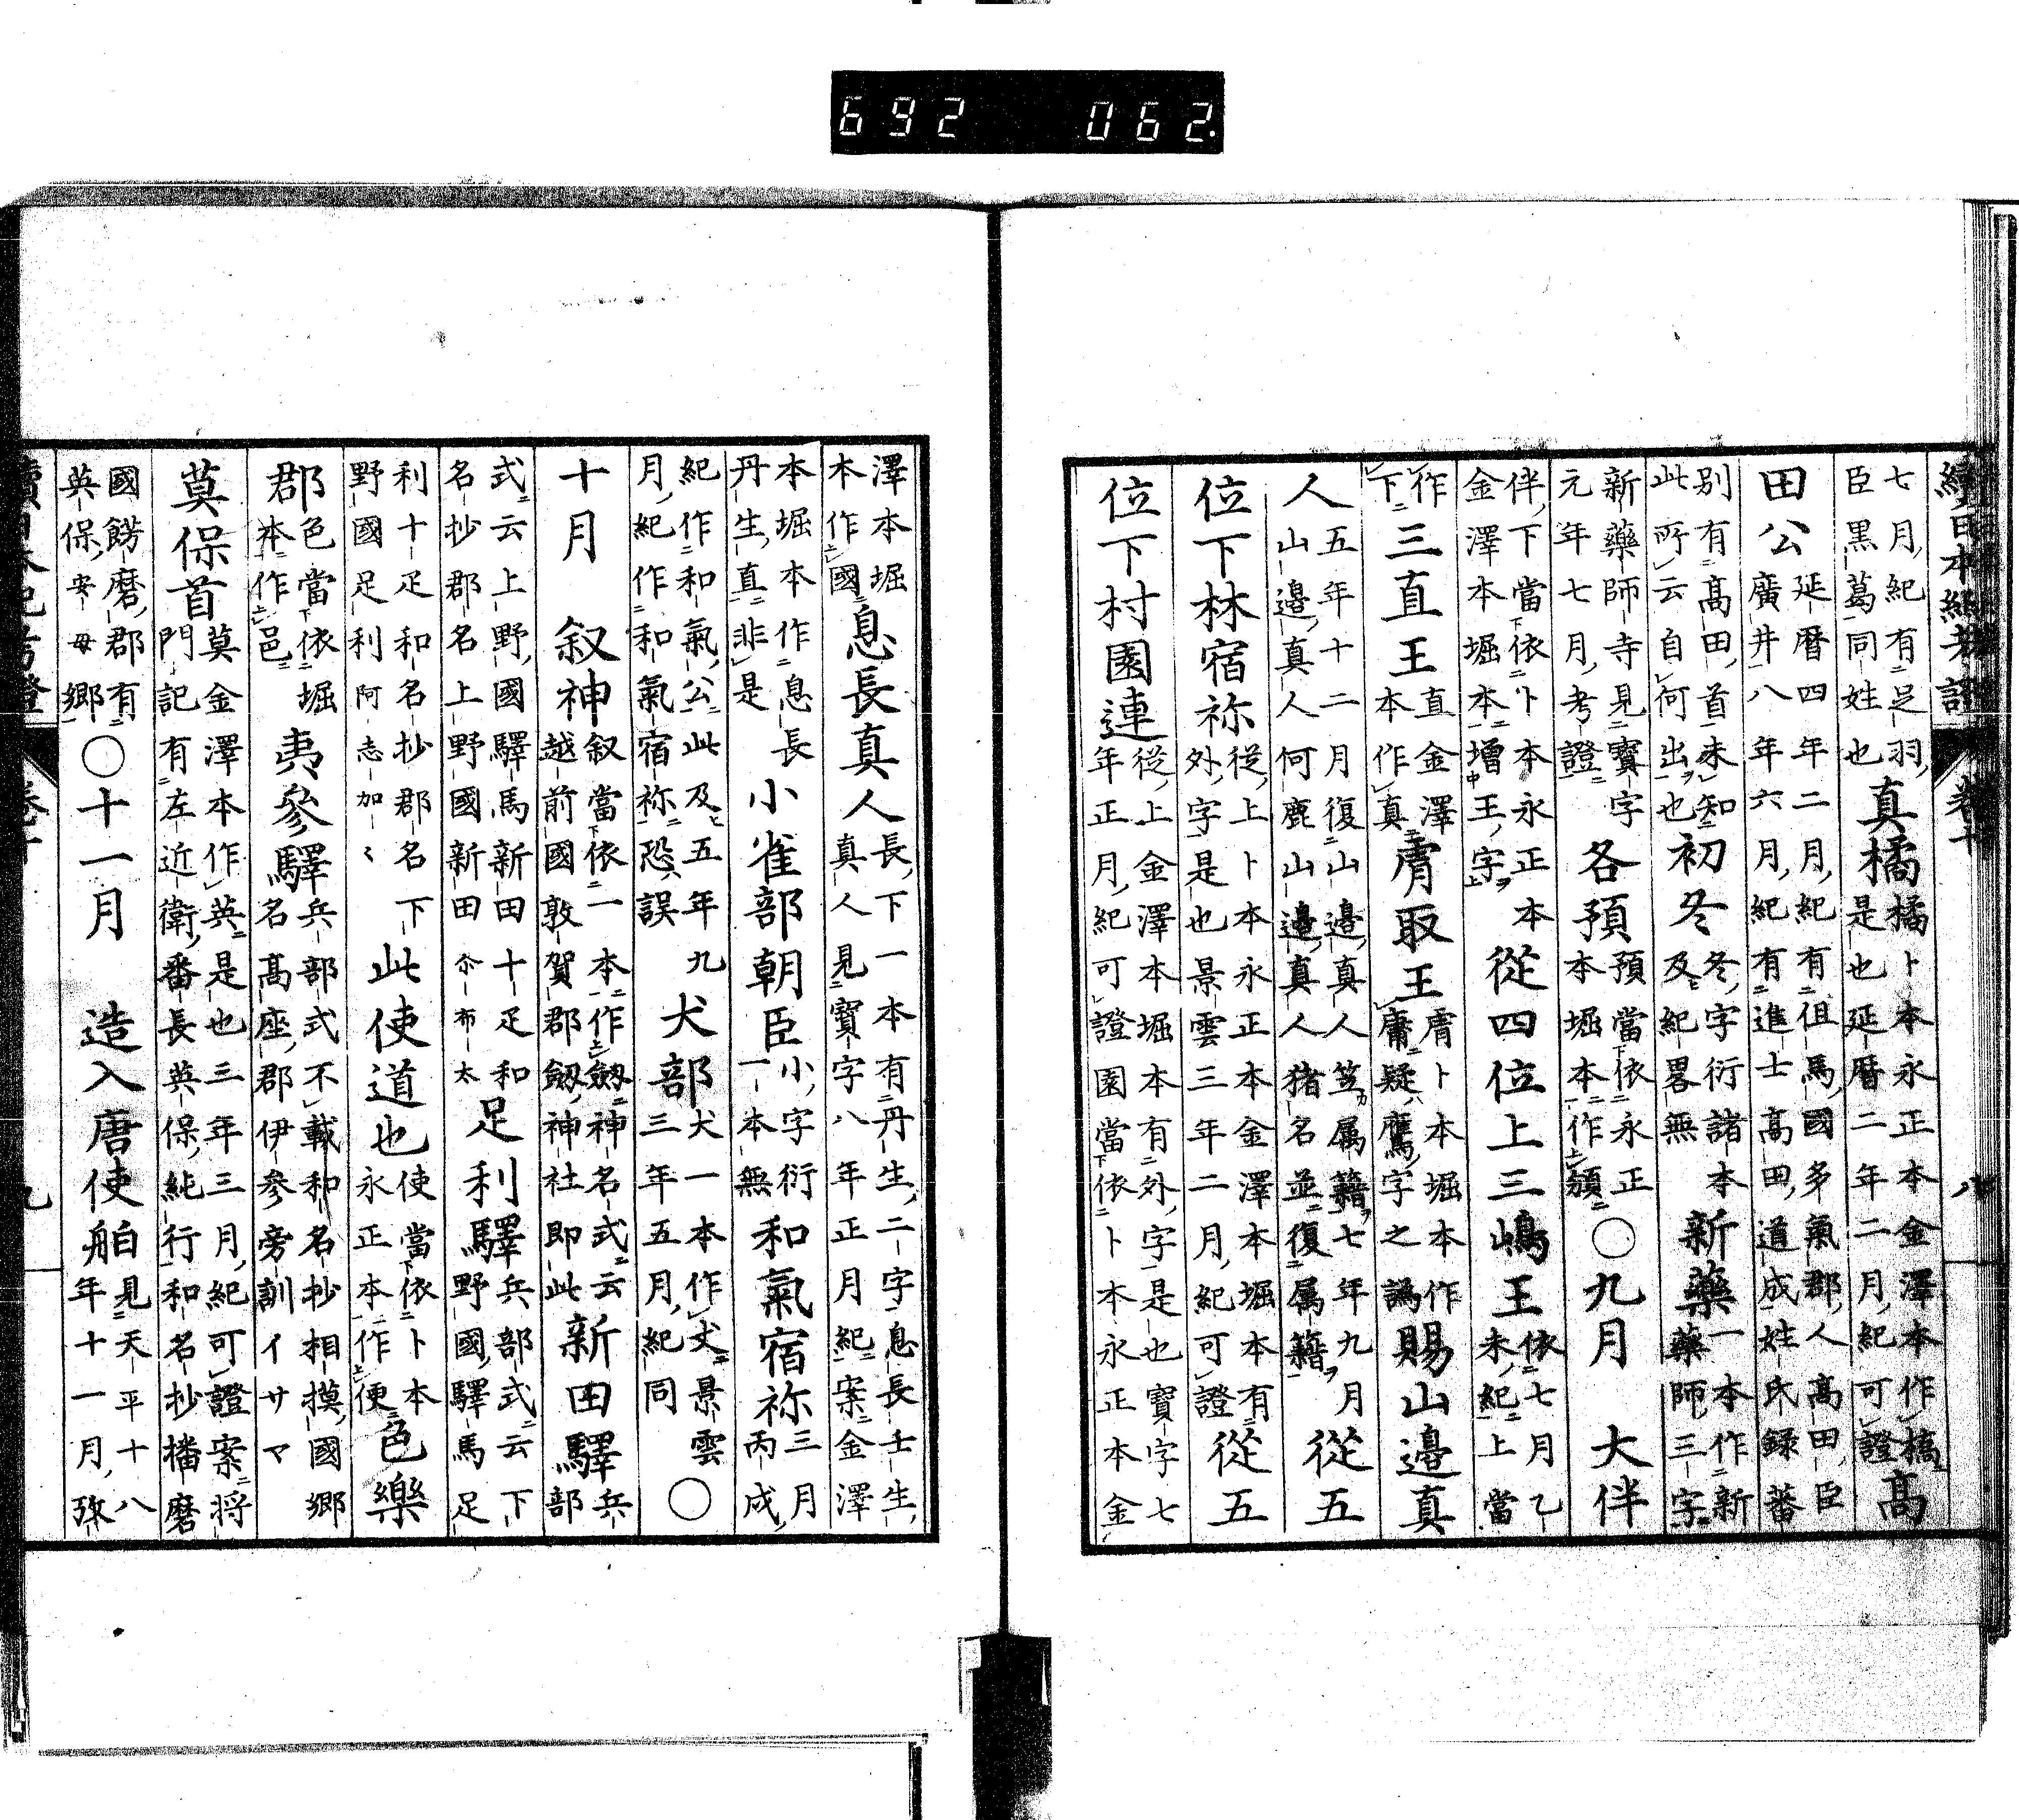 續日本紀考證 卷十 八
七月紀有足羽臣黒葛同姓也 真橘 橘卜本永正本金澤本作槁是也延暦二年二月紀可證 髙
田公 延暦四年二月紀有但馬國多氣郡人髙田臣廣井八年六月紀有進士髙田道成姓氏録蕃
别有髙田首未知此所云自何出也 初冬 冬字衍諸本及紀畧無 新藥 一本作新藥師三字
新藥師寺見寶字元年七月考證 各預 預當依永正本堀本作頒 ○九月 大伴
伴下當依卜本永正本金澤本堀本增王字 從四位上三嶋王 依七月乙未紀上當
作下 三直王 直金澤本作真 膚取王 膚卜本堀本作庸疑鷹字之譌 賜山邉真
人 五年十二月復山邉真人笠属籍七年九月山邉真人何鹿山邉真人猪名並復属籍 從五
位下林宿祢 從上卜本永正本金澤本堀本有外字是也景雲三年二月紀可證 從五
位下村園連 從上金澤本堀本有外字是也寶字七年正月紀可證園當依卜本永正本金
澤本堀本作國 息長真人 長下一本有丹生二字息長壬生真人見寶字八年正月紀案金澤
本堀本作息長丹生直非是 小雀部朝臣 小字衍一本無 和氣宿祢 三月丙戌
紀作和氣公此及五年九月紀作和氣宿祢恐誤 犬部 犬一本作丈景雲三年五月紀同 ○
十月 叙神 叙當依一本作劔神名式云越前國敦賀郡劔神社即此 新田驛 兵部
式云上野國驛馬新田十疋和名抄郡名上野國新田尒布太 足利驛 兵部式云下野國驛馬足
利十疋和名抄郡名下野國足利阿志加々 此使道也 使當依卜本永正本作便 色樂
郡 色當依堀本作邑 夷參驛 兵部式不載和名抄相摸國郷名髙座郡伊參旁訓イサマ
莫保首 莫金澤本作英是也三年三月紀可證案将門記有左近衛番長英保純行和名抄播磨
國餝磨郡有英保安母郷 ○十一月 造入唐使舶 見天平十八年十一月攷
續日本紀考證 卷十 九
692 062.